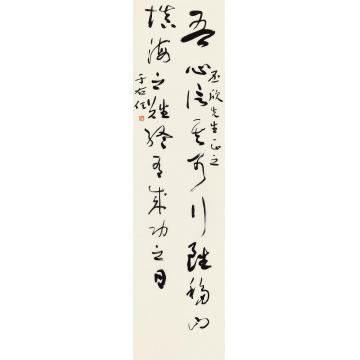 吾心信其可行雖移山
欣先生正之
填海之難終有成功之日
于右任